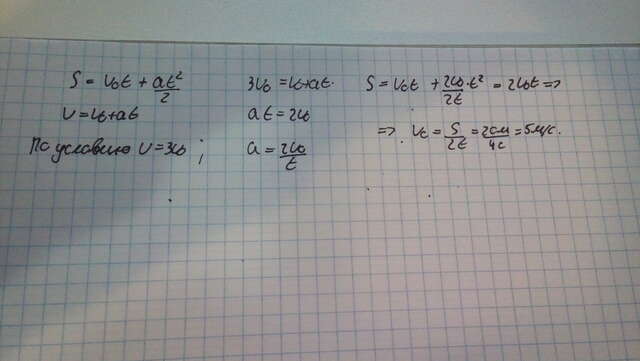 S = v₀t + at²/2
v = v₀ + at
По условию v = 3v₀ ;
3v₀ = v₀ + at.
at = 2v₀
a = 2v₀/t
S = v₀t + 2v₀·t²/2t = 2v₀t =>
=> v₀ = S/2t = 20м/4с = 5м/с.